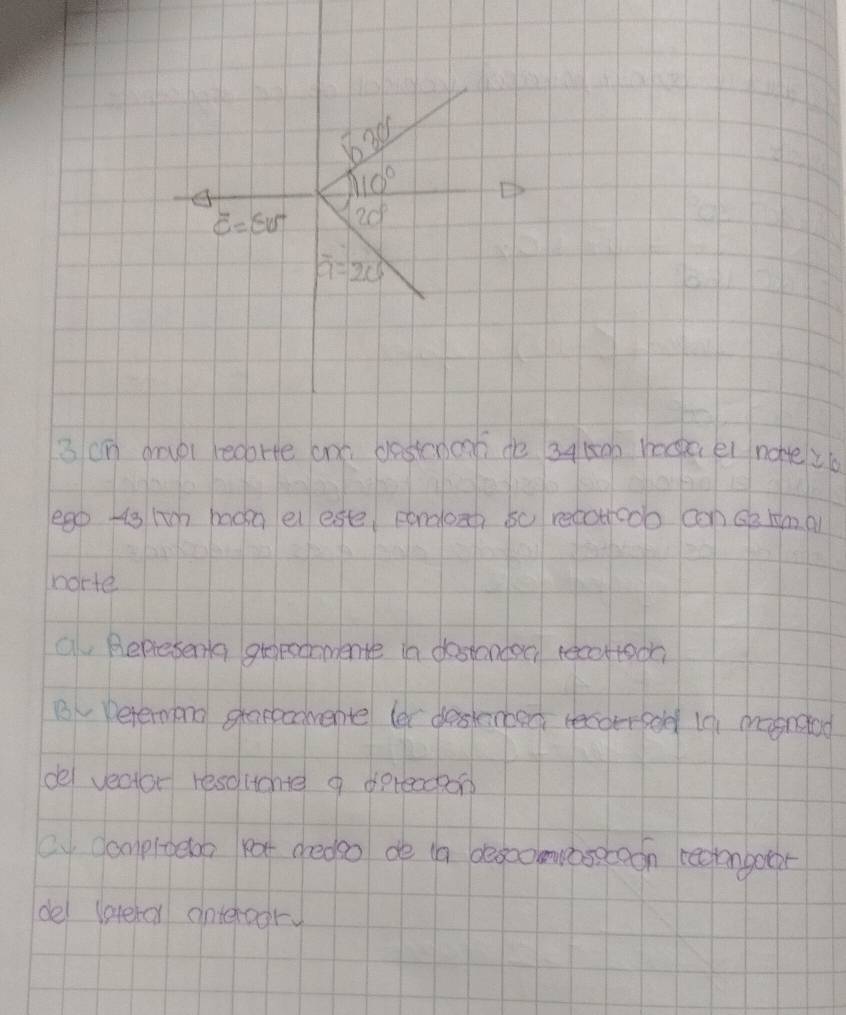 b 30
110°
20°
c̄ = 
ā = 20
3 un móvil recorre una distancia de 34 km hacia el norte lu
ego 43 km hacia el este, finaliza su recorrido con 62 km al
norte
a. Representa graficamente la distancia recorrida
B. Determina graficamente la distancia recorrida la magnitud
del vector resultante y dirección
C. comprueba por medio de la descomposición rectangular
del literal anterior.